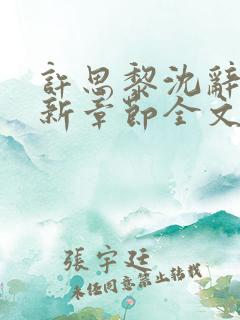 許思黎沈辭
新章節全文
張宇廷
未经同意禁止转载